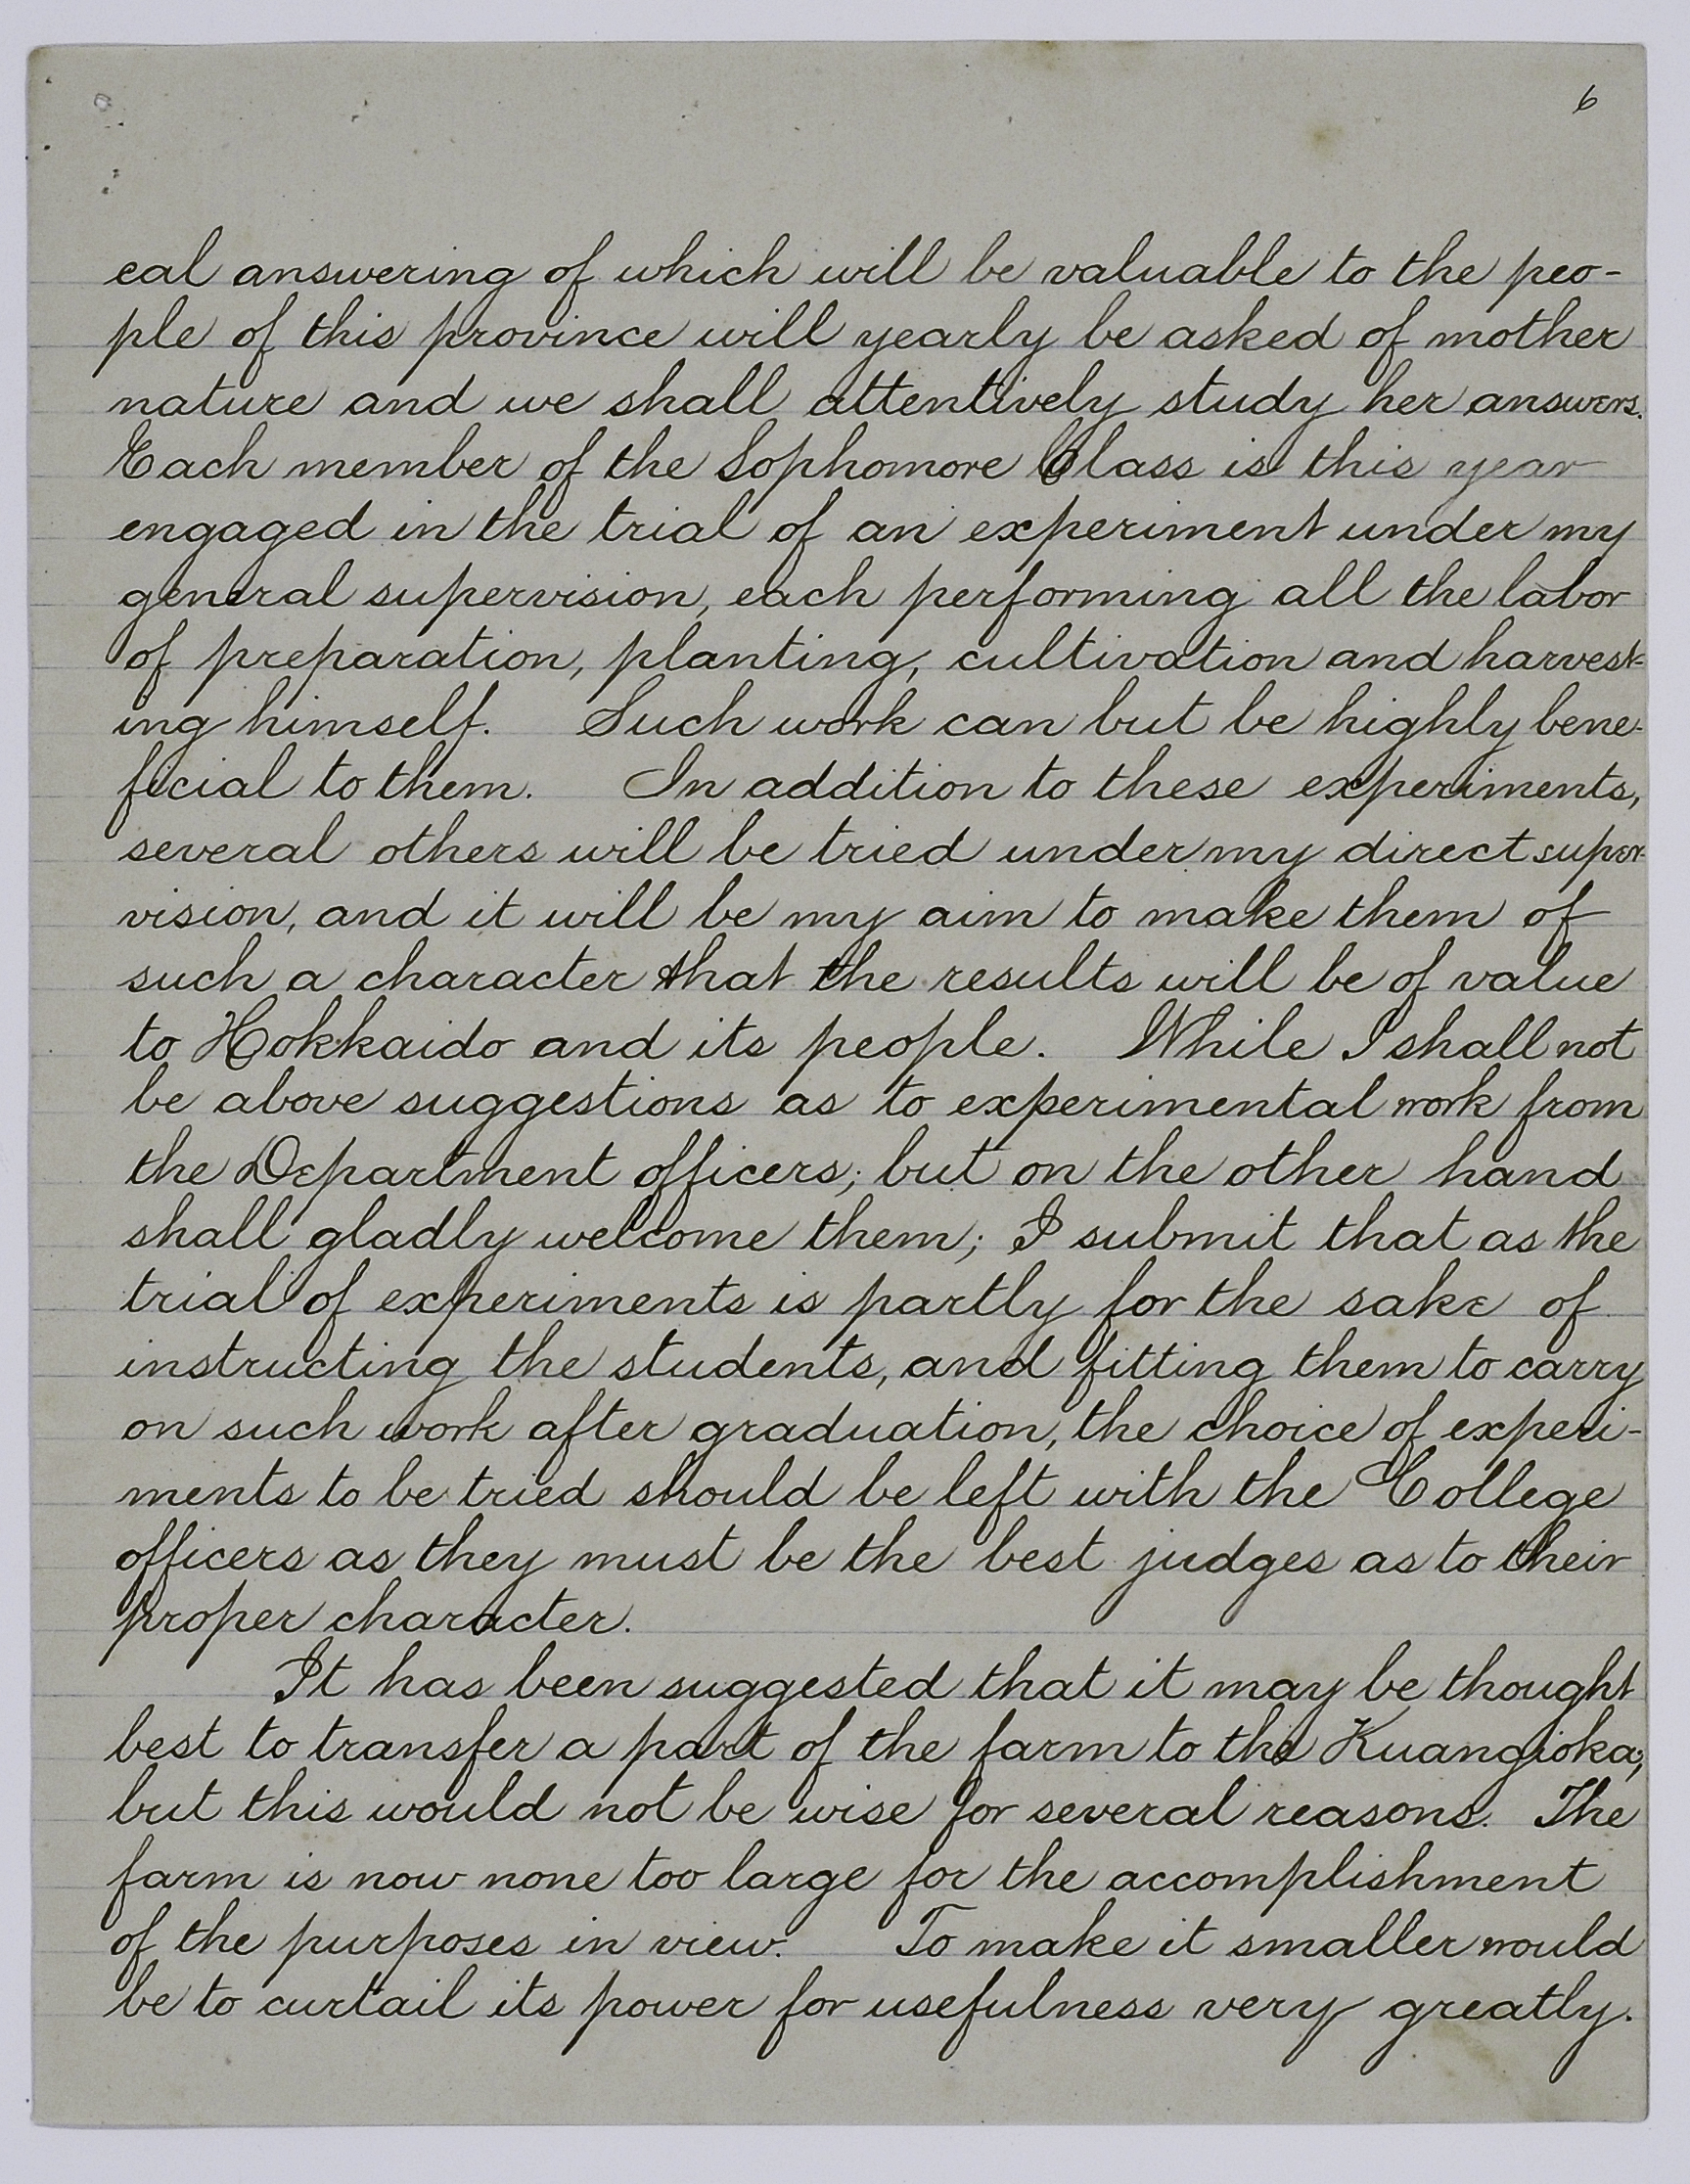 6
cal answering of which will be valuable to the peo-
ple of this province will yearly be asked of mother
nature and we shall attentively study her answers.
Each member of the Sophomore Class is this year
engaged in the trial of an experiment under my
general supervision, each performing all the labor
of preparation, planting, cultivation and harvest-
ing himself. Such work can but be highly bene-
ficial to them. In addition to these experiments,
several others will be tried under my direct super-
vision, and it will be my aim to make them of
such a character that the results will be of value
to Hokkaido and its people. While I shall not
be above suggestions as to experimental work from
the Department officers; but on the other hand
shall gladly welcome them; I submit that as the
trial of experiments is partly for the sake of
instructing the students, and fitting them to carry
on such work after graduation, the choice of experi-
ments to be tried should be left with the College
officers as they must be the best judges as to their
proper character.
It has been suggested that it may be thought
best to transfer a part of the farm to the Kuangioka;
but this would not be wise for several reasons. The
farm is now none too large for the accomplishment
of the purposes in view. To make it smaller would
be to curtail its power for usefulness very greatly.